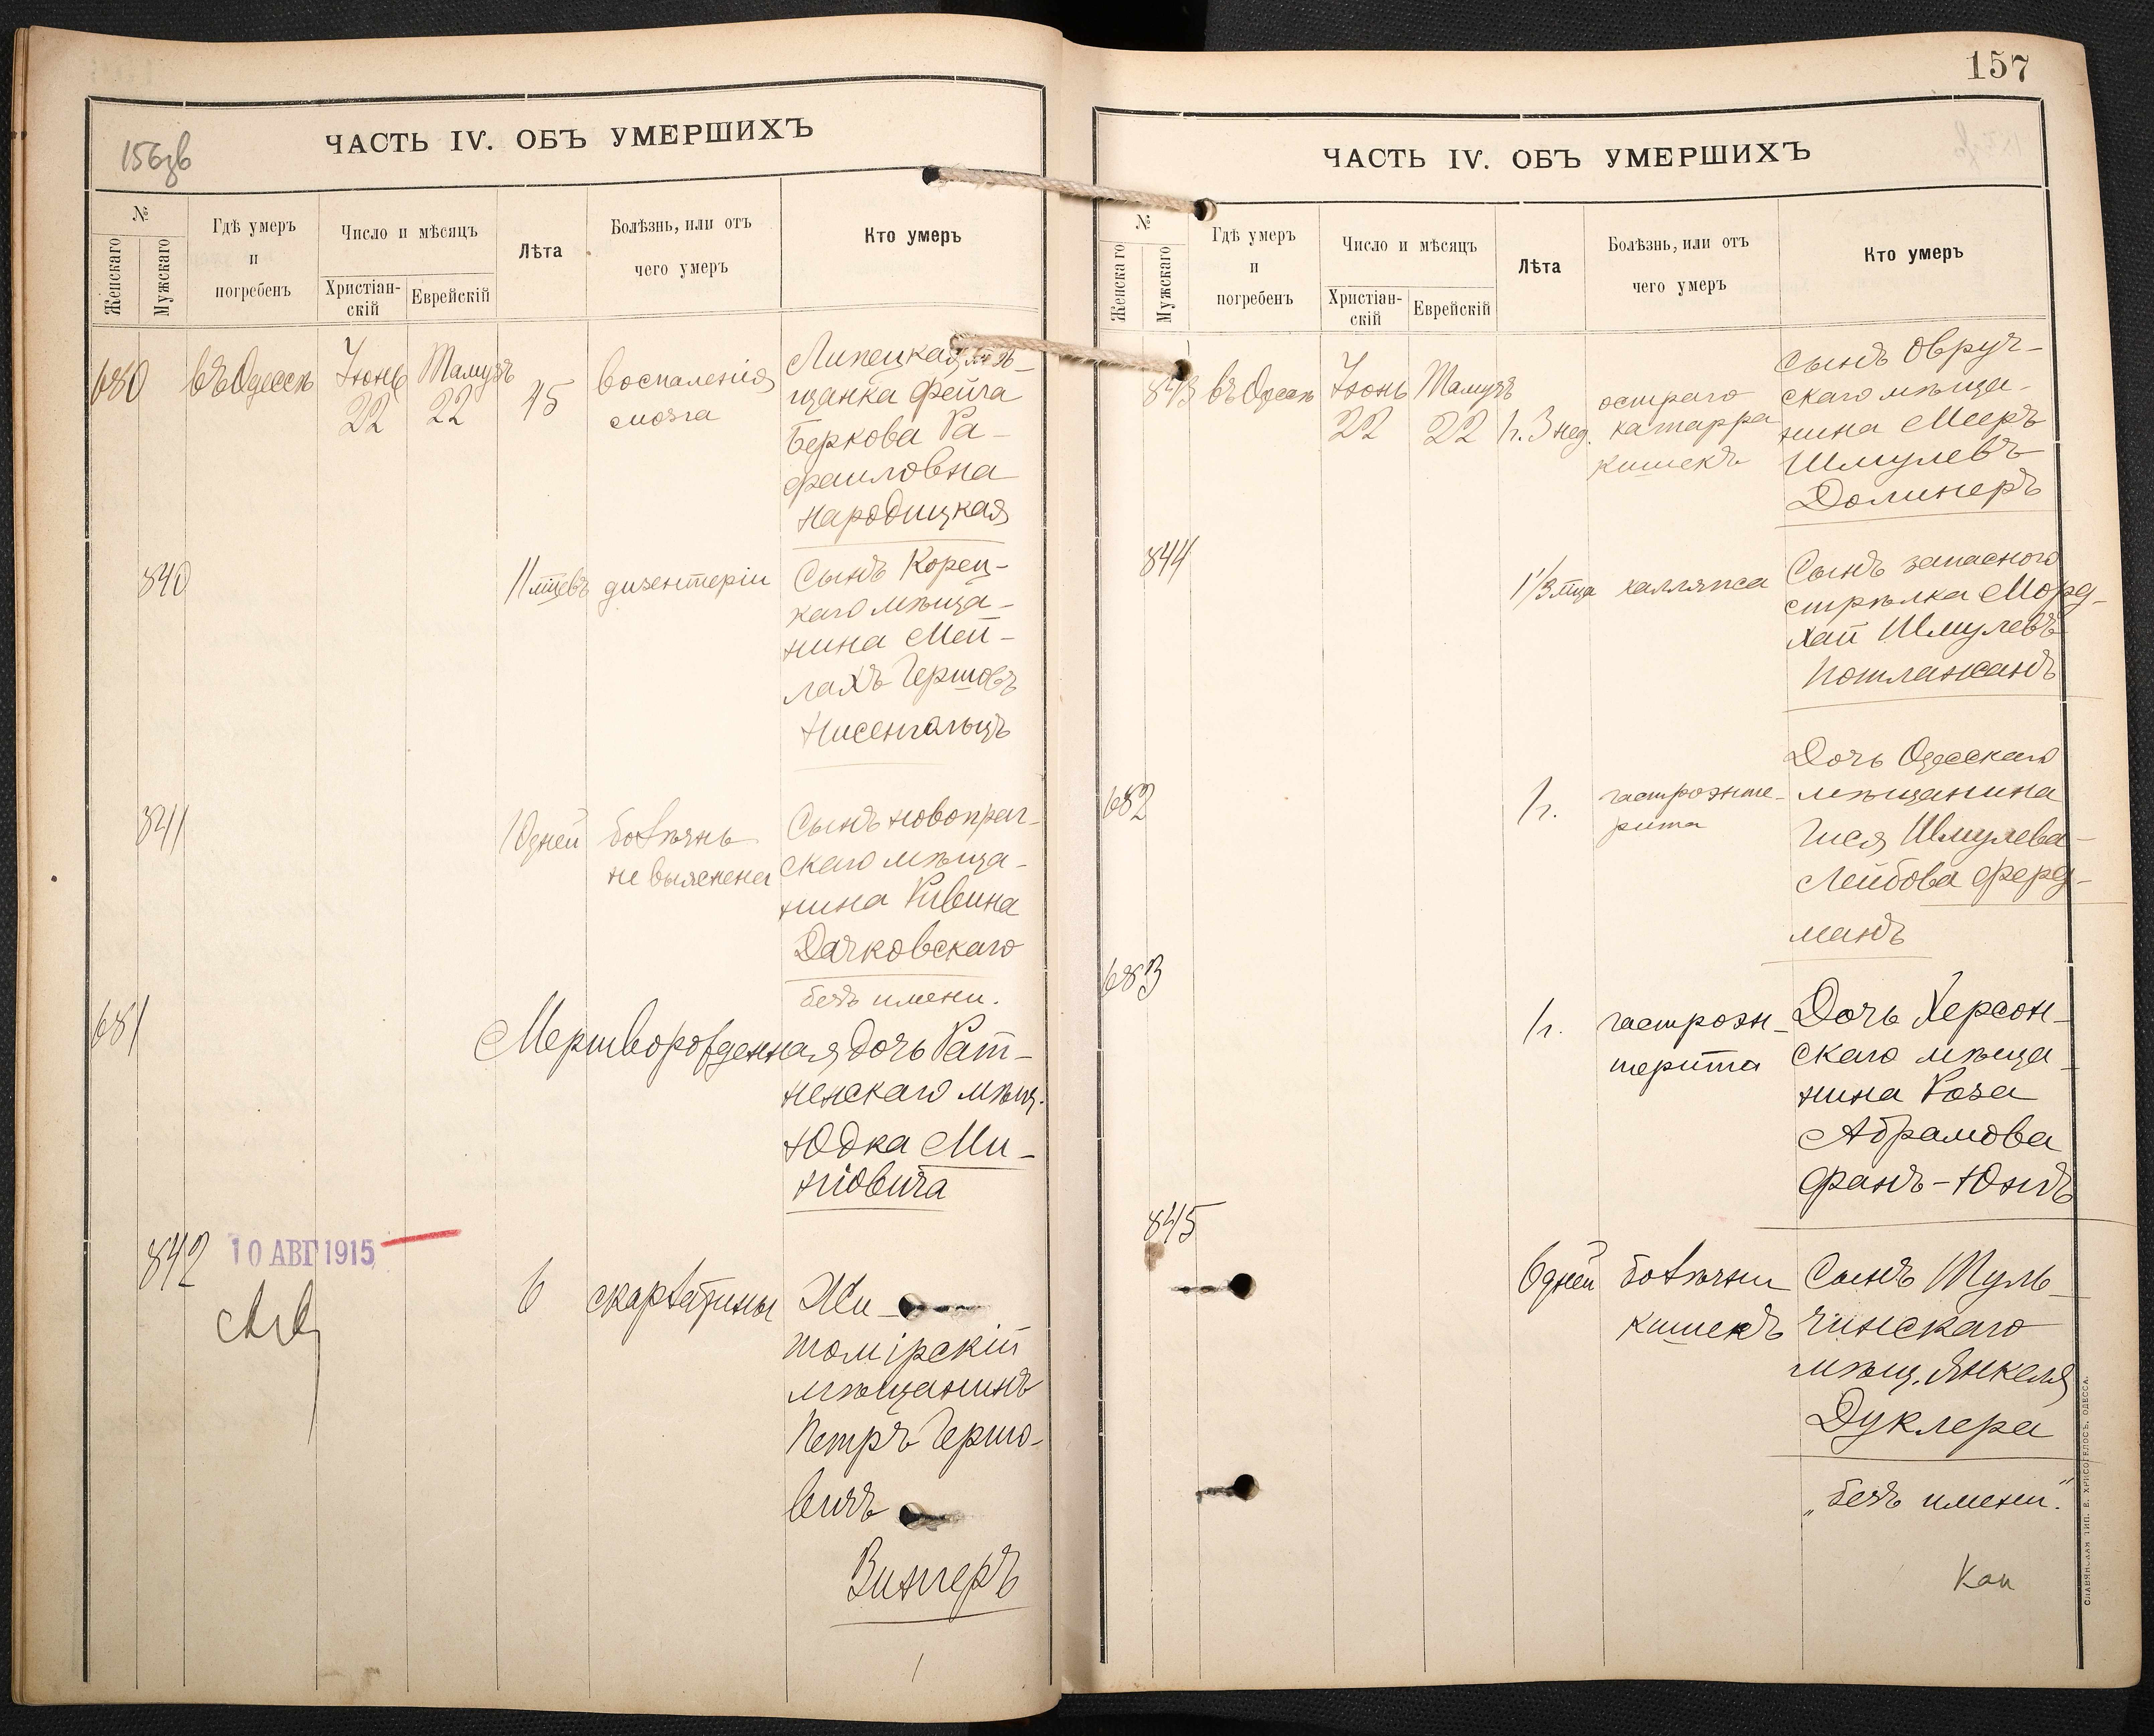 156об
ЧАСТЬ IV. ОБЪ УМЕРШИХЪ
№
Женскаго
Мужскаго
Гдѣ умеръ
и
погребенъ
Число и мѣсяцъ
Христіан-
скій
Еврейскій
Лѣта
Болѣзнь, или отъ
чего умеръ
Кто умеръ
680
въ Одессѣ
Іюнь
22
Тамузъ
22
45
воспаленія
мозга
Липецкая мѣ-
щанка Фейга
Беркова Ра-
фаиловна
Народицкая
840
11 мцевъ
дизентеріи
Сынъ Корец-
каго мѣща-
нина Мей-
лахъ Гершовъ
Нисенгольцъ
841
10 дней
болѣзнь
не выяснена
Сынъ Новопраг-
скаго мѣща-
нина Рувина
Дачковскаго
безъ имени.
681
Мертворожденная дочь Рат-
ненскаго мѣщ.
Юдка Ми-
ніовича
842
10 АВГ 1915
6
скарлатины
Жи-
томірскій
мѣщанинъ
Петръ Гершо-
вичъ
Винеръ
157
ЧАСТЬ IV. ОБЪ УМЕРШИХЪ
№
Женскаго
Мужскаго
Гдѣ умеръ
и
погребенъ
Число и мѣсяцъ
Христіан-
скій
Еврейскій
Лѣта
Болѣзнь, или отъ
чего умеръ
Кто умеръ
843
въ Одессѣ
Іюнь
22
Тамузъ
22
1 г. 3 нед.
остраго
катарра
кишекъ
Сынъ Овруч-
скаго мѣща-
нина Мееръ
Шмулевъ
Долинеръ
844
1 1/3 мца
коллапса
Сынъ запаснаго
стрѣлка Морд-
хай Шмулевъ
Потлажанъ
682
1 г.
гастроэнте-
рита
Дочь Одесскаго
мѣщанина
Гися Шмулева-
Лейбова Ферд-
манъ
683
1 г.
гастроэн-
терита
Дочь Херсон-
скаго мѣща-
нина Роза
Абрамова
Фанъ-Юнгъ
845
6 дней
болѣзни
кишекъ
Сынъ Туль-
чинскаго
мѣщ. Янкеля
Дуклера
„безъ имени".
СЛАВЯНСКАЯ ТИП. Е. ХРИСОГЕЛОСЪ, ОДЕССА.